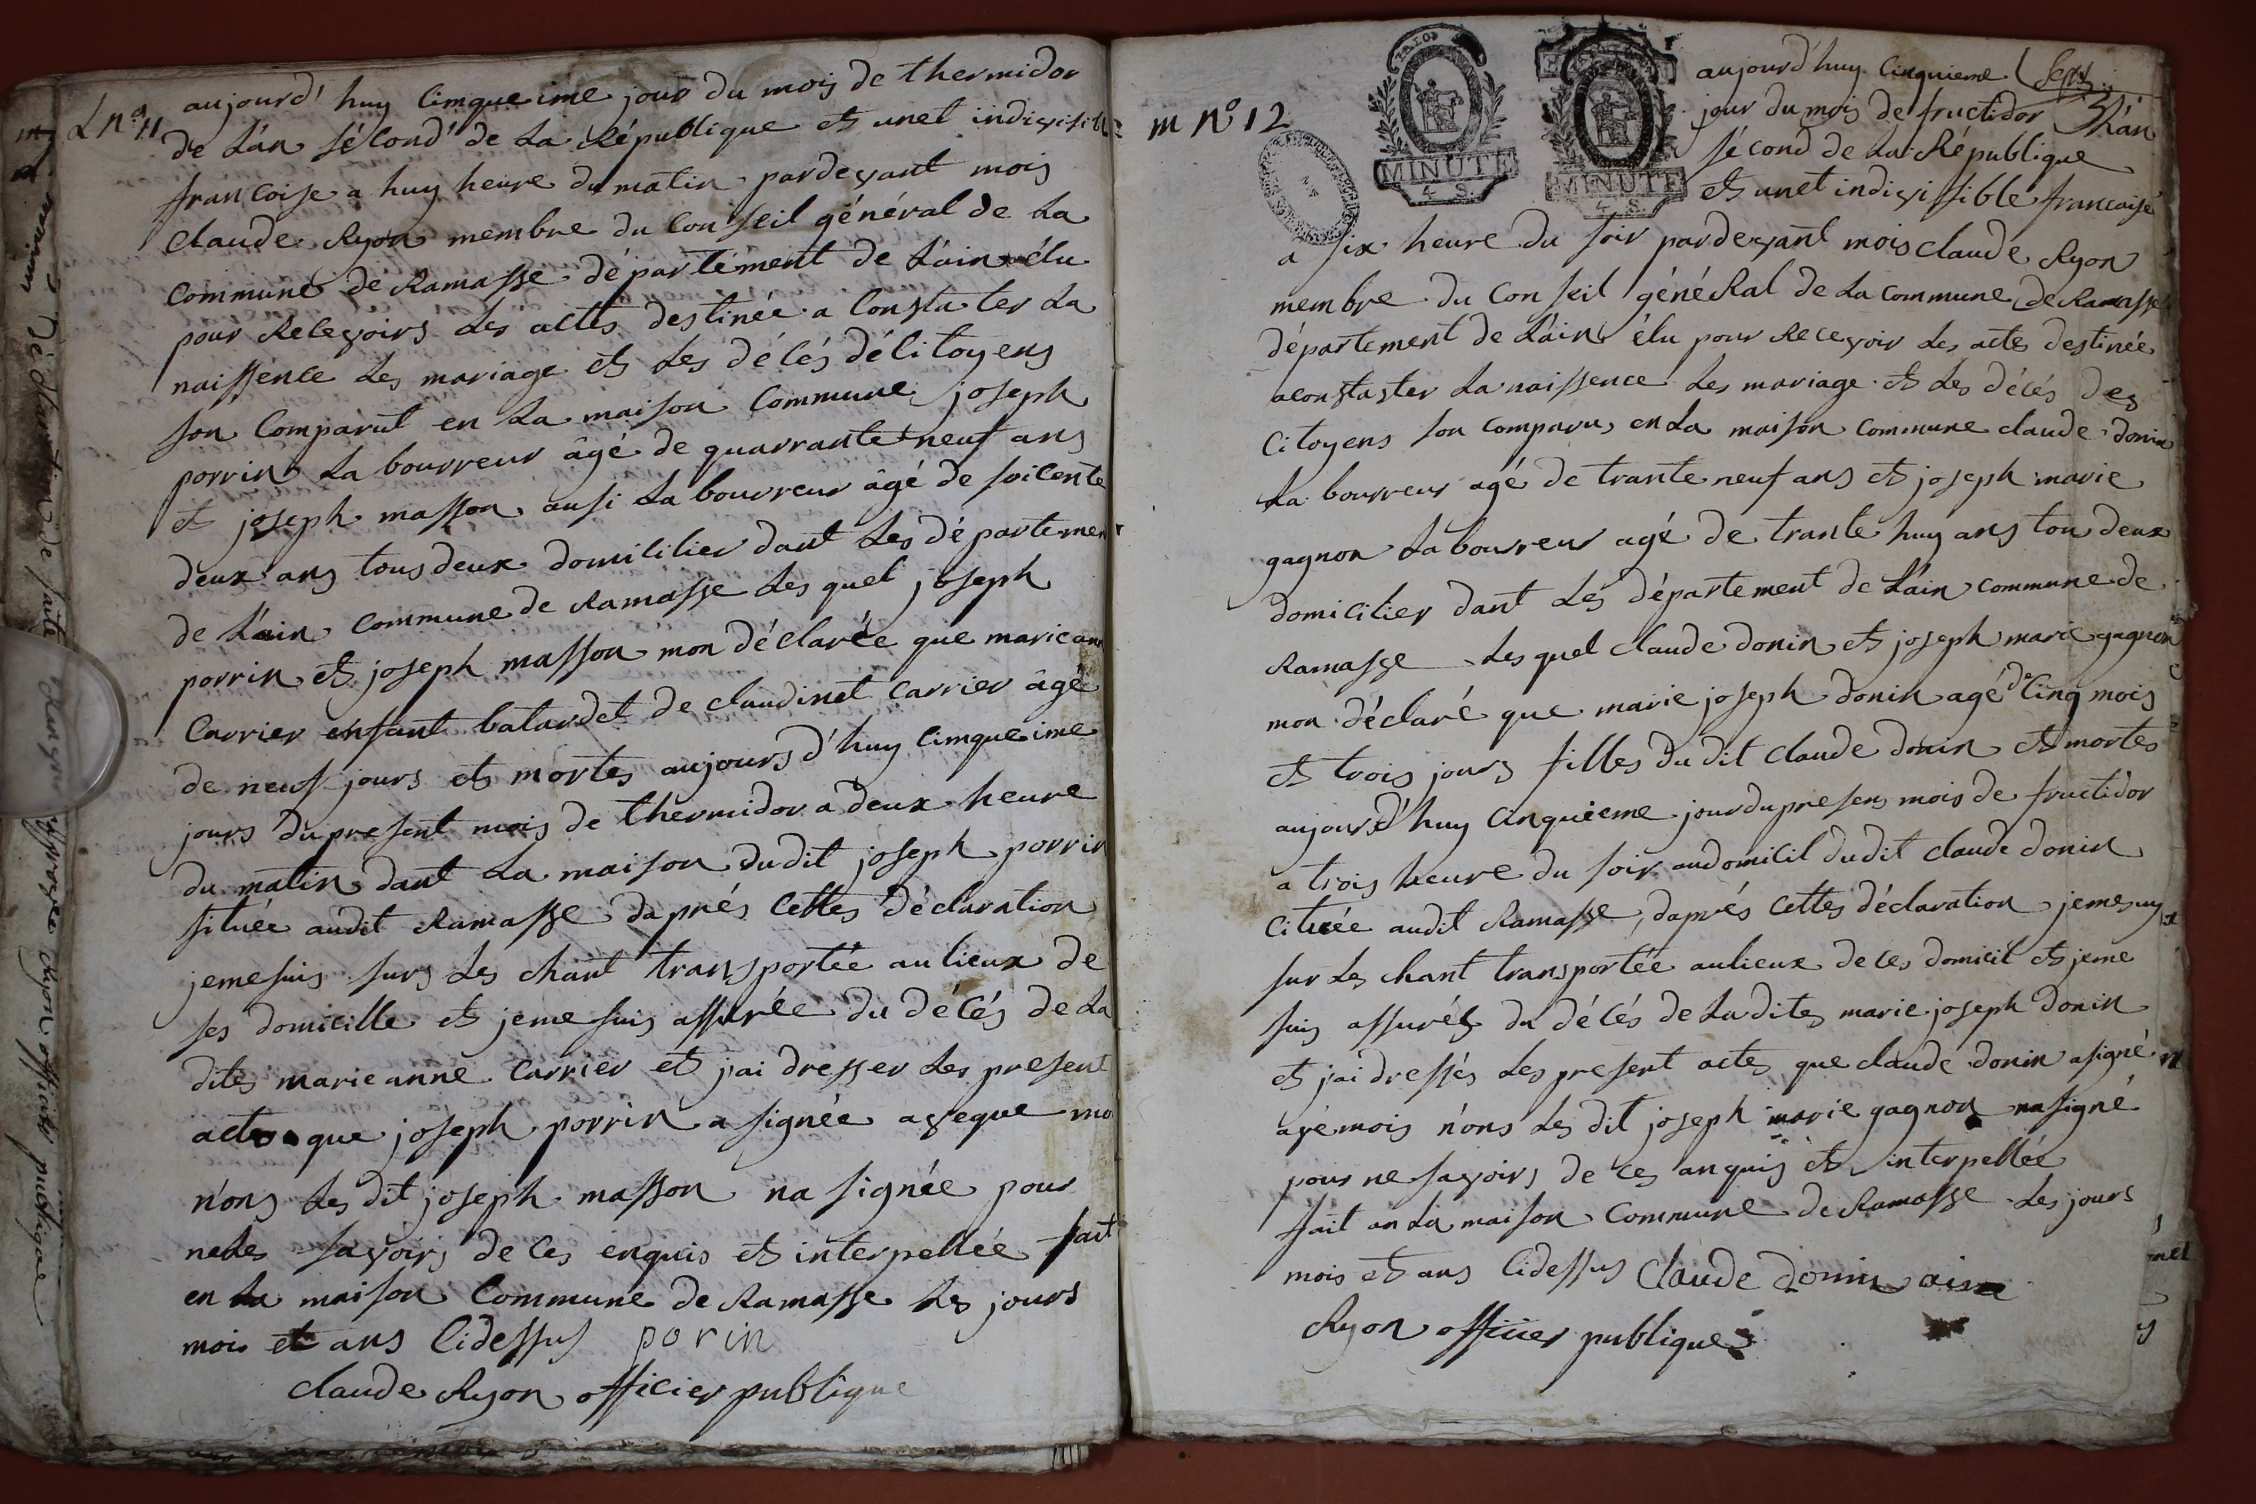 L n° 11
aujourd'huy Cimqueime jour du mois de thermidor
de L'án sécond de La République et unet indivisible
francoise a huy heure du matin pardevant mois
Claude Ryon membre du Conseil général de La
Commune de Ramasse département de L'ain élu
pour Recevoirs Les actes destinée a Constater La
naissence Les mariage et Les décés dé Citoyens
son Comparut en La maison Commune joseph
porrin La bourreur âgé de quarrante neuf ans
et joseph masson ausi La bourreur âgé de soicente
deux ans tous deux domicilier dant Les département
de L'ain Commune de Ramasse Les quel joseph
porrin et joseph masson mon déclarée que marie ann
Carrier enfant batardet de Claudinet Carrier âgé
de neuf jours et mortes aujours d'huy Cimqueime
jours du present mois de thermidor a deux heure
du matin dant La maison dudit joseph porrin
située audit Ramasse daprés Cettes déclaration
jemesuis surs Les chant transportée au lieux de
ses domicille et jeme suis assurée du décés de La
dites marie anne Carrier et jai dresser Les present
actes que joseph porrin a signée aveque mo
n'ons Les dit joseph masson na signée pour
neles savoirs de Ces enquis et interpellée fait
en La maison Commune de Ramasse Les jours
mois et ans Cidessus porin
Claude Ryon officier publique
m N° 12
MINUTE
4 S.
MINUTE
4 S.
aujourd'huy Cinquieme Sept
jour du mois de fructidor L'án
sécond de La République
et unet indivissible francaise
a six heure du soir pardevant mois Claude Ryon
membre du Conseil généRal de La Commune de Ramasse
département de L'ain élu pour Recevoir Les actes destinée
aconstaster La naissence Les mariage et Les décés des
Citoyens son Comparu en La maison Commune claude donin
La bourreur agé de trante neuf ans et joseph marie
gagnon La bourreur agé de trante huy ans tou deux
domicilier dant Les département de L'ain Commune de
Ramasse Les quel Claude donin et joseph marie gagnon
mon déclaré que marie joseph donin agé de Cinq mois
et trois jours filles du dit Claude donin et mortes
aujours d'huy Cinquieme jour du presens mois de fructidor
a trois heure du soir au domicil du dit Claude donin
Cituée audit Ramasse, daprés Cettes déclaration jemesuy
sur Les chant transportée aulieux de Ces domicil et jeme
suis assurés du décés de La dites marie joseph donin
et jai dressés Les present actes que Claude donin a signé
avémois n'ons Les dit joseph marie gagnon na signé
pour ne savoirs de Ces anquis et interpellée
fait an La maison Commune de Ramasse Les jours
mois et ans Cidessus Claude donin
Ryon officier publique